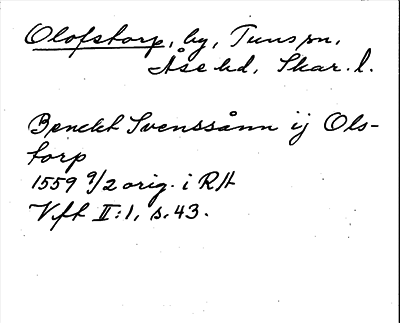 Olofstorp, by, Tuns sn,
Åse hd, Skar. l.
Benckt Svenssånn ij Ols-
torp
1559 9/2 orig. i RA
Vft II:1, s. 43.